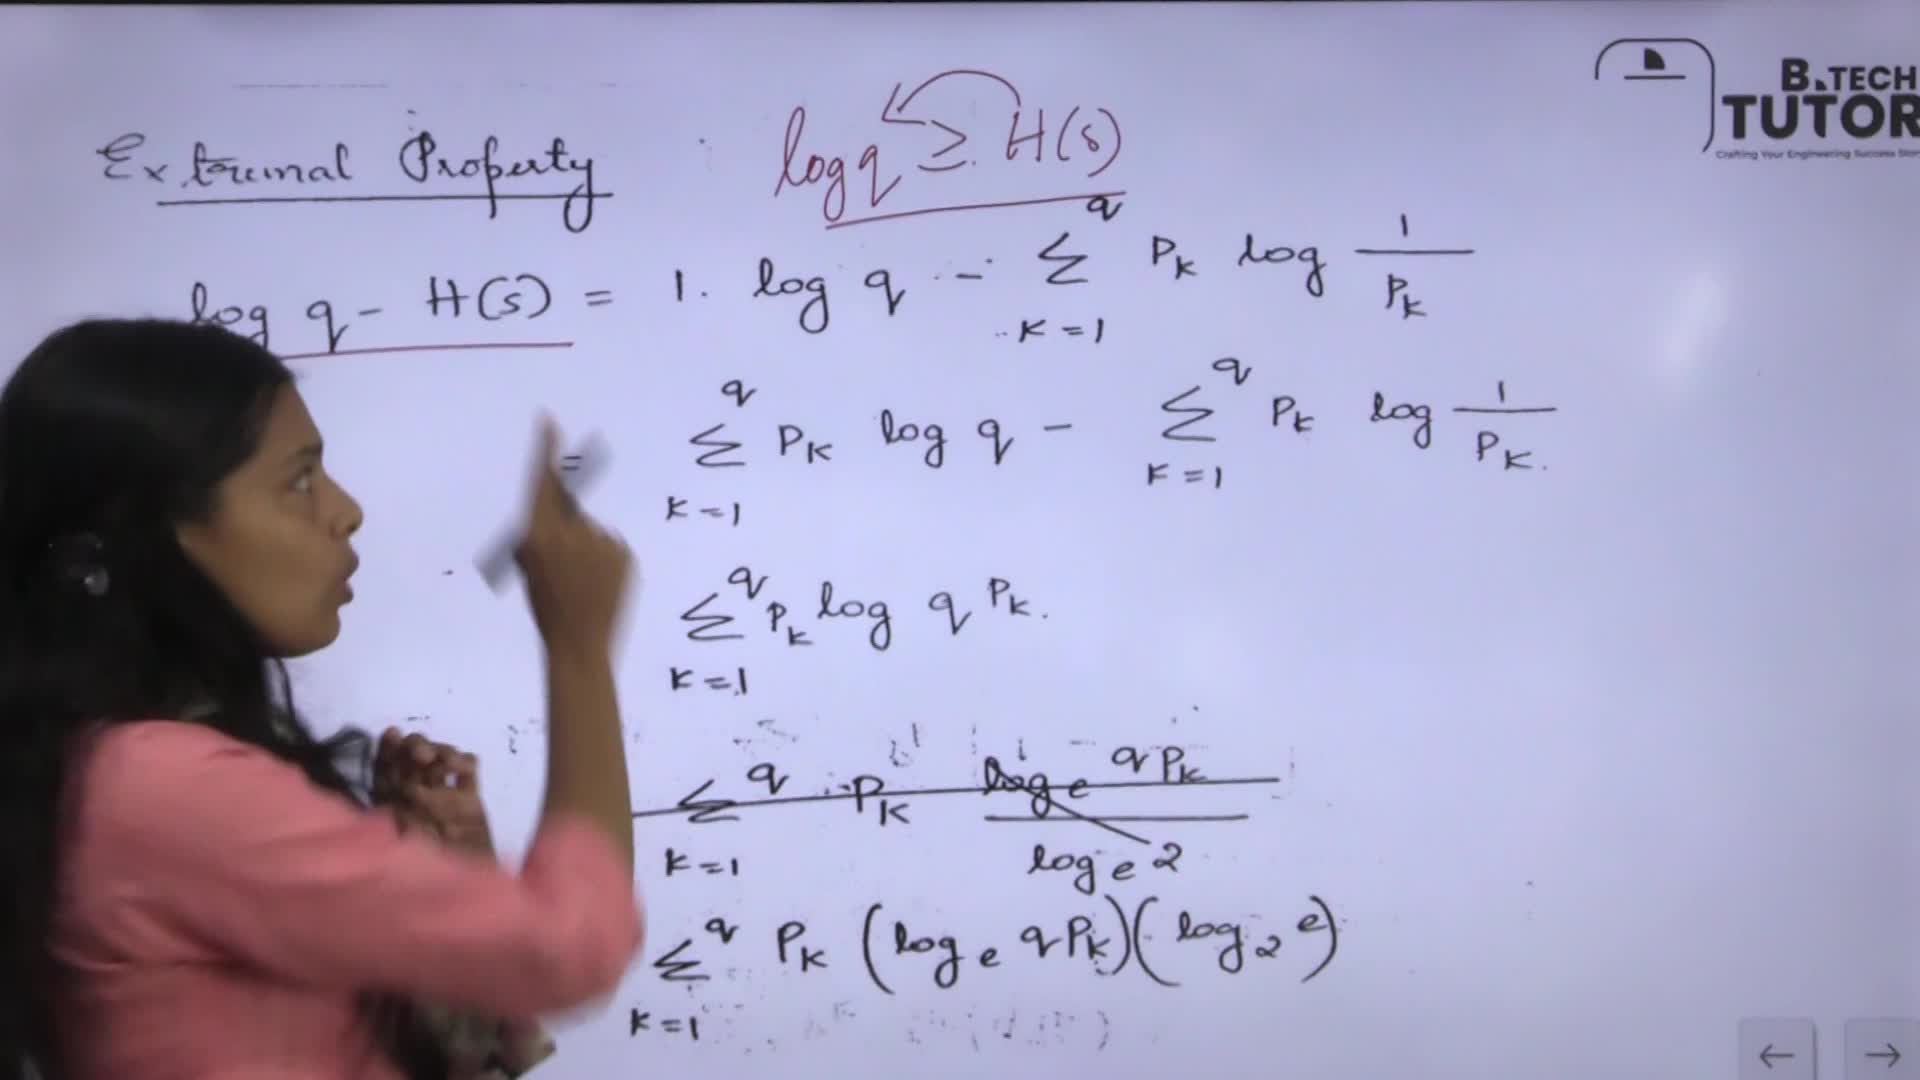 B.TECH
TUTOR
Crafting Your Engineering Success
Extremal Property
log q ≥ H(s)
log q - H(s) = 1. log q - Σ_{K=1}^{q} P_K log 1/P_K
= Σ_{K=1}^{q} P_K log q - Σ_{K=1}^{q} P_K log 1/P_K.
Σ_{K=1}^{q} P_K log q P_K.
Σ_{K=1}^{q} P_K log_e q P_K / log_e 2
Σ_{K=1}^{q} P_K (log_e q P_K)(log_2 e)